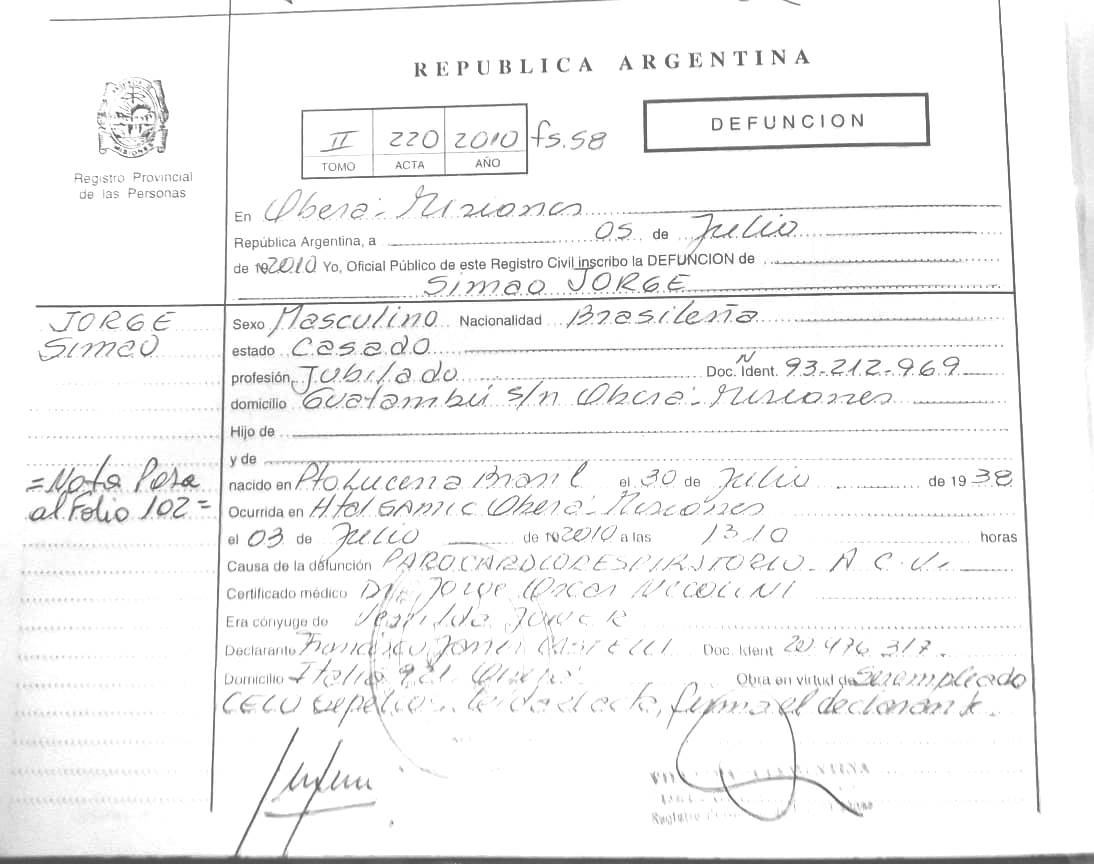 REPUBLICA ARGENTINA
DEFUNCION
II 220 2010 fs.58
TOMO ACTA AÑO
MISIONES
Registro Provincial
de las Personas
En Oberá - Misiones
República Argentina, a 05 de Julio
de 19 2010 Yo, Oficial Público de este Registro Civil inscribo la DEFUNCION de
Simao JORGE
JORGE
Simao
Sexo Masculino Nacionalidad Brasileña
estado Casado
profesión Jubilado Doc. Ident. N 93-212-969
domicilio Guatambú s/n Oberá - Misiones
Hijo de
y de
=Nota Pasa
al Folio 102=
nacido en Pto Lucena Brasil el 30 de Julio de 19 38
Ocurrida en Htal SAMIC Oberá - Misiones
el 03 de Julio de 19 2010 a las 13 10 horas
Causa de la defunción PAROCARDIORESPIRATORIO - A C.V.
Certificado médico Dr. Jorge Oscar NICOLINI
Era cónyuge de
Declarante Francisco Doc. Ident 20 476 317
Domicilio Italia 921 Oberá Obra en virtud de Ser empleado
CELO sepelio - leida el acta, firma el declarante.
Registro